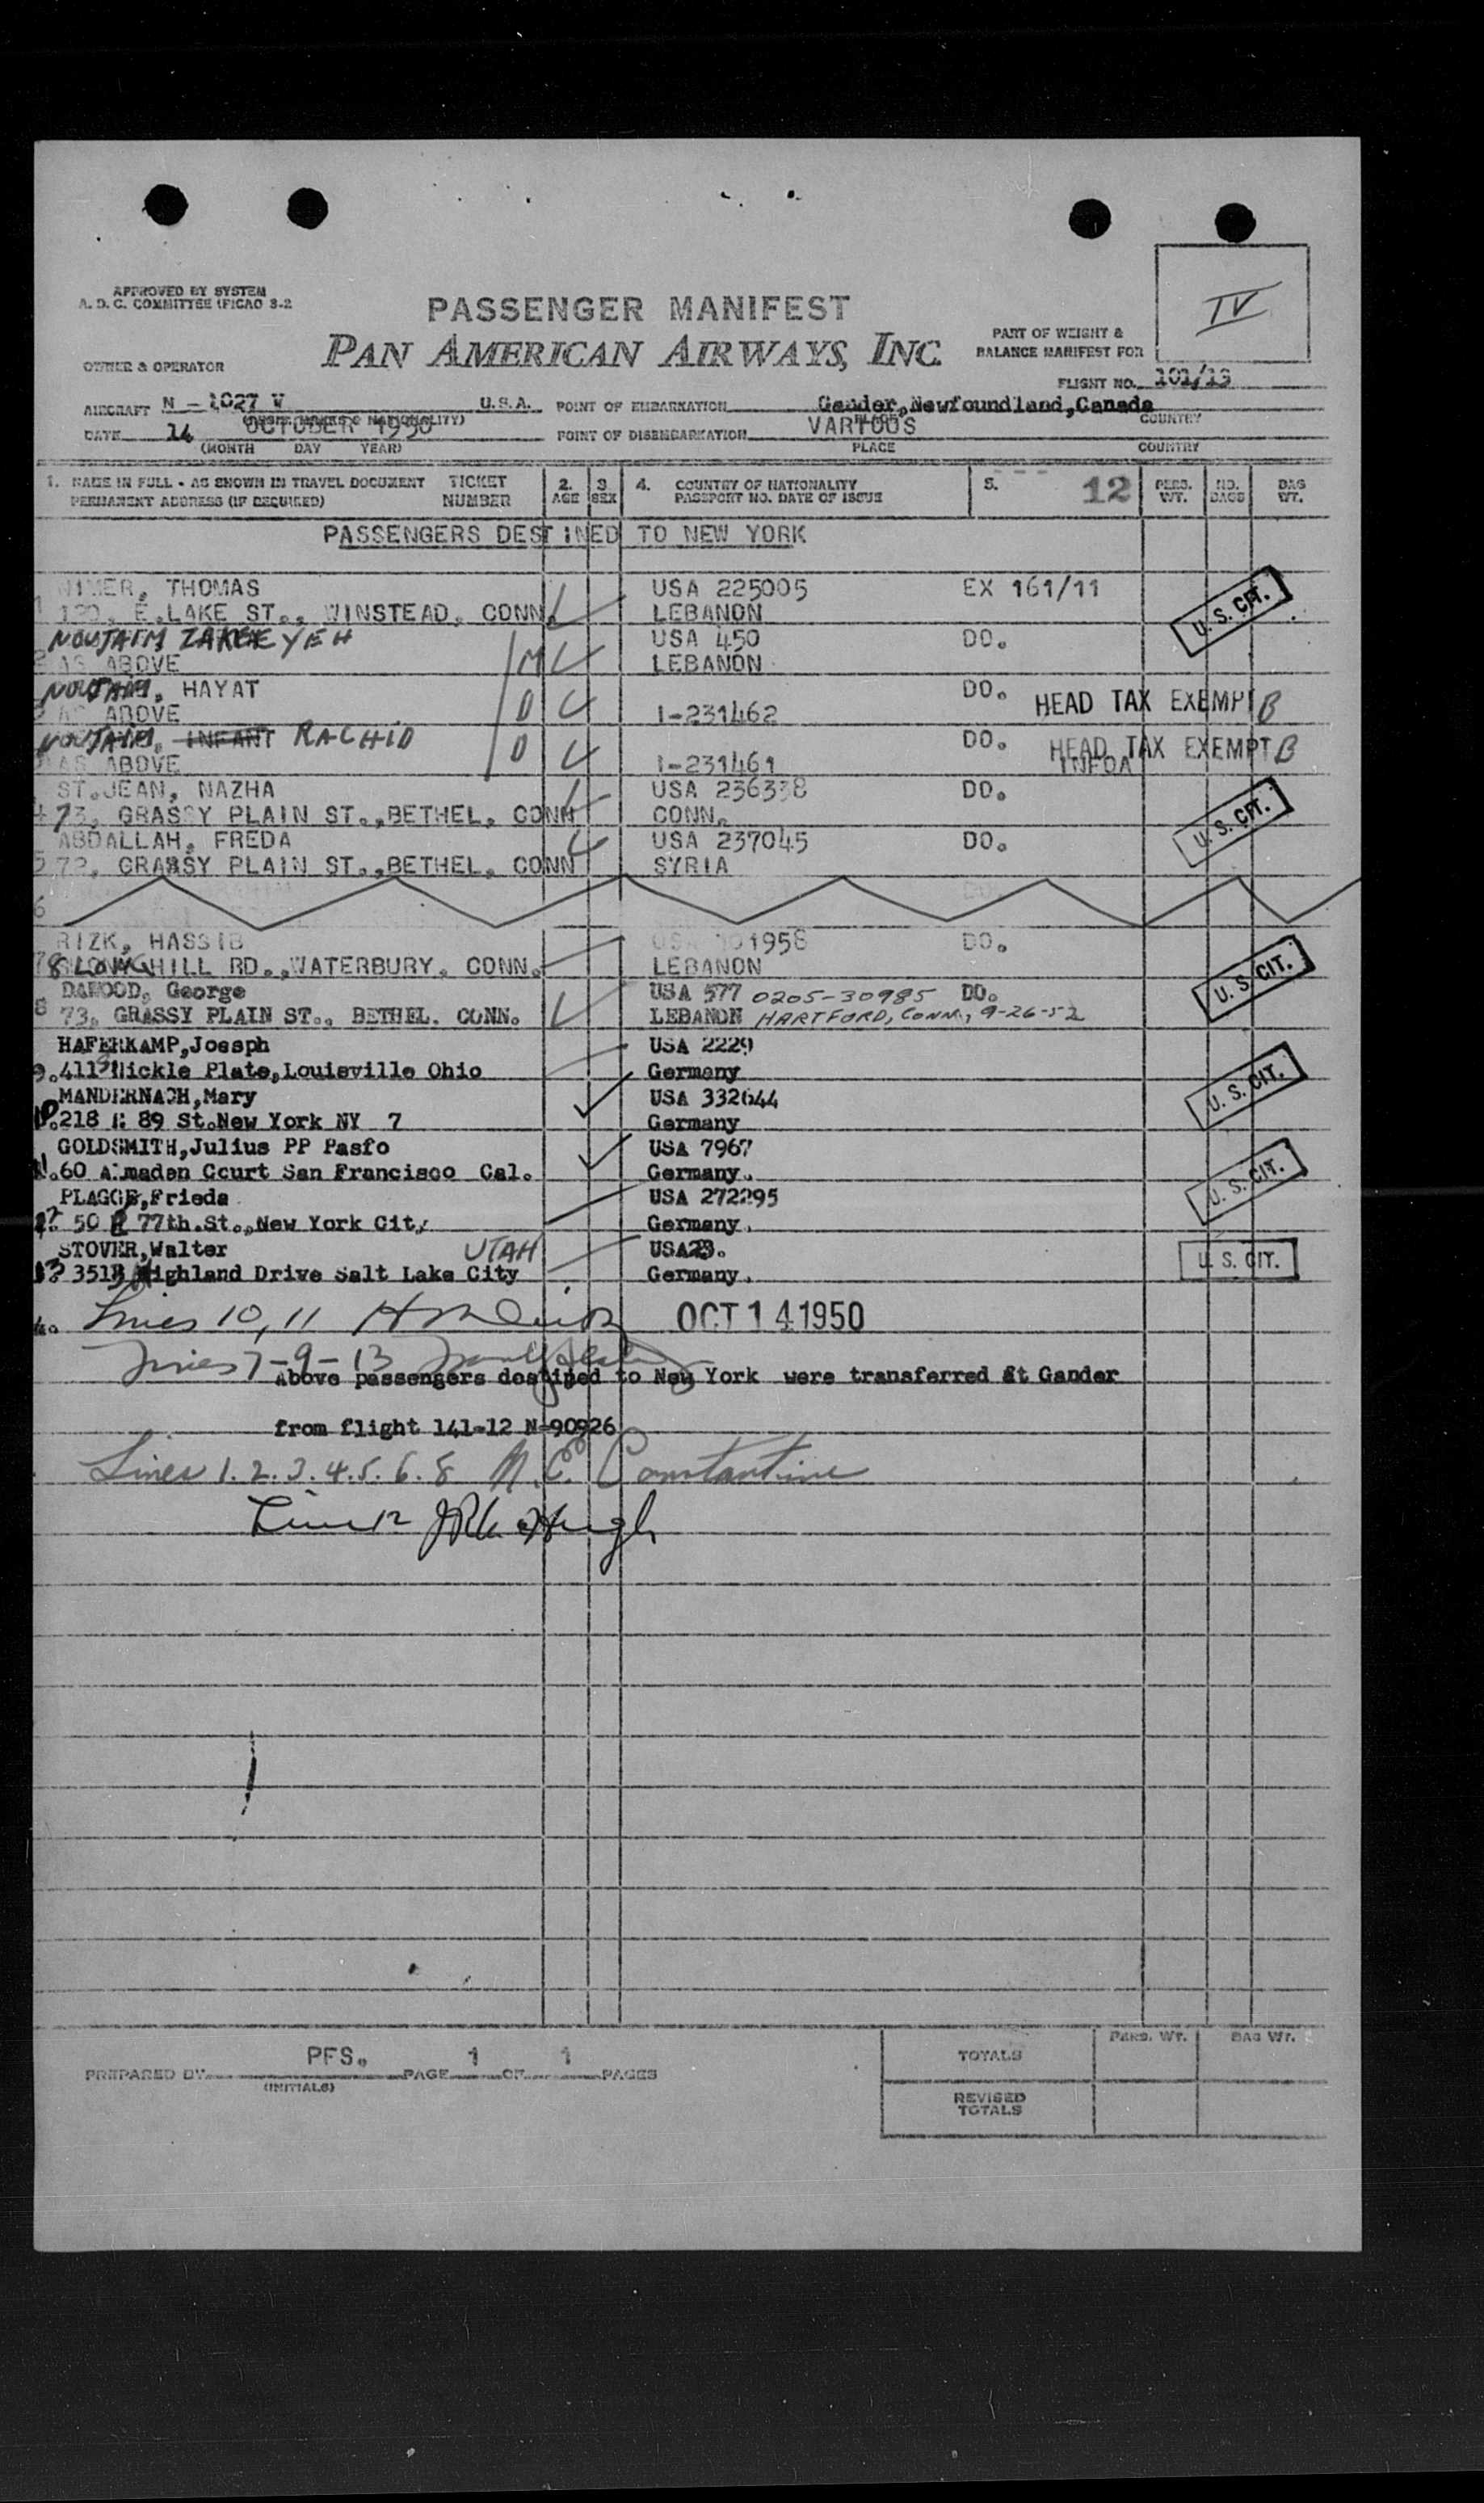 APPROVED BY SYSTEM
A. D. C. COMMITTEE (FICAO S-2
PASSENGER MANIFEST
PAN AMERICAN AIRWAYS, INC.
PART OF WEIGHT &
BALANCE MANIFEST FOR
IV
OWNER & OPERATOR
FLIGHT NO. 101/13
AIRCRAFT N - 1027 V U.S.A. POINT OF EMBARKATION Gander, Newfoundland, Canada
COUNTRY
DATE 14 OCTOBER 1950 POINT OF DISEMBARKATION VARIOUS
(MONTH DAY YEAR) PLACE COUNTRY
1. NAME IN FULL - AS SHOWN IN TRAVEL DOCUMENT TICKET 2. 3 4. COUNTRY OF NATIONALITY 5. 12 PERS. NO. BAG
PERMANENT ADDRESS (IF REQUIRED) NUMBER AGE SEX PASSPORT NO. DATE OF ISSUE WT. BAGS WT.
PASSENGERS DESTINED TO NEW YORK
THOMAS USA 225005 EX 161/11
1 E. LAKE ST., WINSTEAD, CONN. LEBANON U. S. CIT.
NOUJAIM ZAKEYEH USA 450 DO.
2 AS ABOVE M LEBANON
NOUJAIM, HAYAT DO. HEAD TAX EXEMPT B
AS ABOVE D I-231462
NOUJAIM, INFANT RACHID DO. HEAD TAX EXEMPT B
AS ABOVE D I-231461 INFOA
ST.JEAN, NAZHA USA 236338 DO.
4 73, GRASSY PLAIN ST., BETHEL, CONN CONN. U. S. CIT.
ABDALLAH, FREDA USA 237045 DO.
5 72, GRASSY PLAIN ST., BETHEL, CONN SYRIA
6
RIZK, HASSIB USA 1958 DO.
7 8 LONG HILL RD., WATERBURY, CONN. LEBANON U. S. CIT.
DAHOOD, George USA 577 0205-30985 DO.
8 73, GRASSY PLAIN ST., BETHEL. CONN. LEBANON HARTFORD, CONN., 9-26-52
HAFERKAMP, Joesph USA 2229
9. 411 Nickle Plate, Louisville Ohio Germany U. S. CIT.
MANDERNACH, Mary USA 332644
10. 218 E 89 St. New York NY 7 Germany
GOLDSMITH, Julius PP Pasfo USA 7967
11. 60 Almaden Court San Francisco Cal. Germany. U. S. CIT.
PLAGGE, Frieda USA 272295
12 50 E 77th. St., New York City Germany.
STOVER, Walter UTAH USA23.
13 351 Highland Drive Salt Lake City Germany. U. S. CIT.
Lines 10, 11 OCT 14 1950
Lines 7-9-13
Above passengers destined to New York were transferred at Gander
from flight 141-12 N-90926
Lines 1. 2. 3. 4. 5. 6. 8 N. E. Constantine
Line 12
PREPARED BY PFS. PAGE 1 OF 1 PAGES
(INITIALS)
PERS. WT. BAG WT.
TOTALS
REVISED
TOTALS